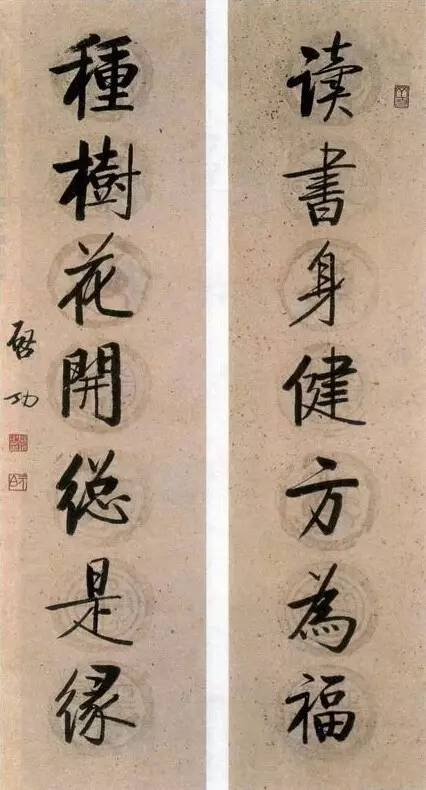 读書身健方為福
種樹花開緫是緣
啓功